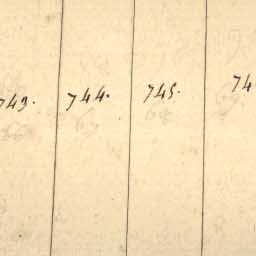 743. 744. 745. 74